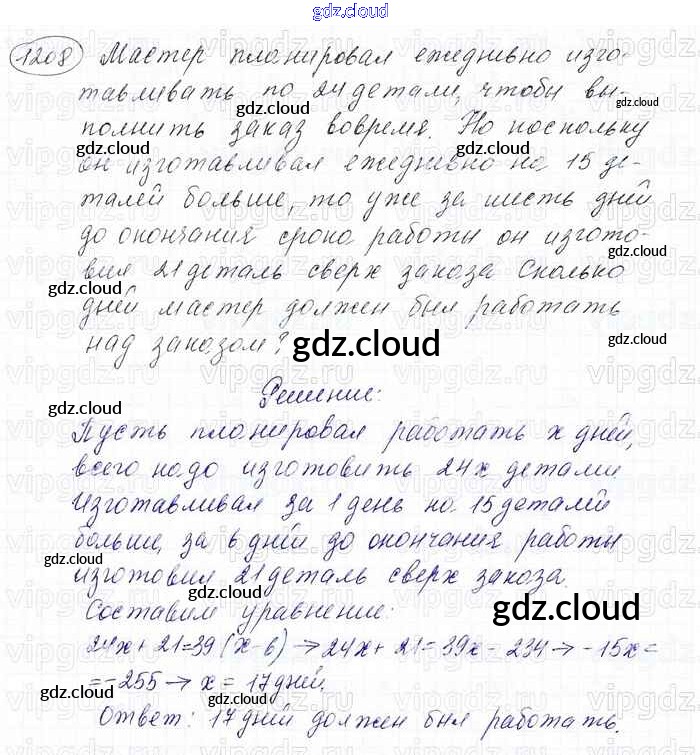 gdz.cloud
1208 Мастер планировал ежедневно изго-
тавливать по 24 детали, чтобы вы-
gdz.cloud gdz.cloud
полнить заказ вовремя. Но поскольку
gdz.cloud gdz.cloud
он изготавливал ежедневно на 15 де-
талей больше, то уже за шесть дней
gdz.cloud
до окончания срока работы он изгото-
gdz.cloud
вил 21 деталь сверх заказа Сколько
gdz.cloud
дней мастер должен был работать
над заказом?
gdz.cloud
gdz.cloud
Решение:
gdz.cloud
Пусть планировал работать x дней,
gdz.cloud
всего надо изготовить 24x детали
Изготавливал за 1 день на 15 деталей
gdz.cloud
больше, за 6 дней до окончания работы
gdz.cloud
изготовил 21 деталь сверх заказа.
Составим уравнение:
gdz.cloud
24x + 21 = 39 (x - 6) → 24x + 21 = 39x - 234 → - 15x =
gdz.cloud
= - 255 → x = 17 дней.
gdz.cloud
Ответ: 17 дней должен был работать.
gdz.cloud